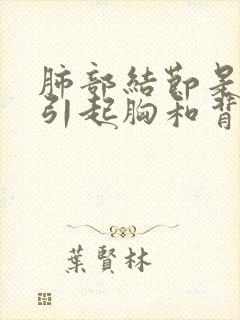 肺部結節是
引起胸和背
葉賢林